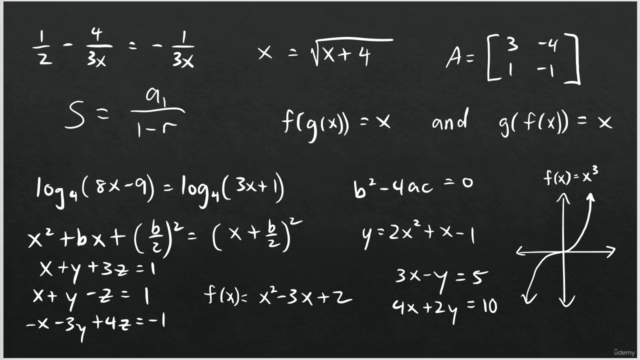 1/2 - 4/3x = - 1/3x
x = √(x+4)
A = [3 -4; 1 -1]
S = a₁/(1-r)
f(g(x)) = x and g(f(x)) = x
log₄(8x-9) = log₄(3x+1)
b²-4ac = 0
f(x)=x³
x² + bx + (b/2)² = (x + b/2)²
y = 2x² + x - 1
x + y + 3z = 1
x + y - z = 1
-x - 3y + 4z = -1
f(x) = x² - 3x + 2
3x - y = 5
4x + 2y = 10
ûdemy